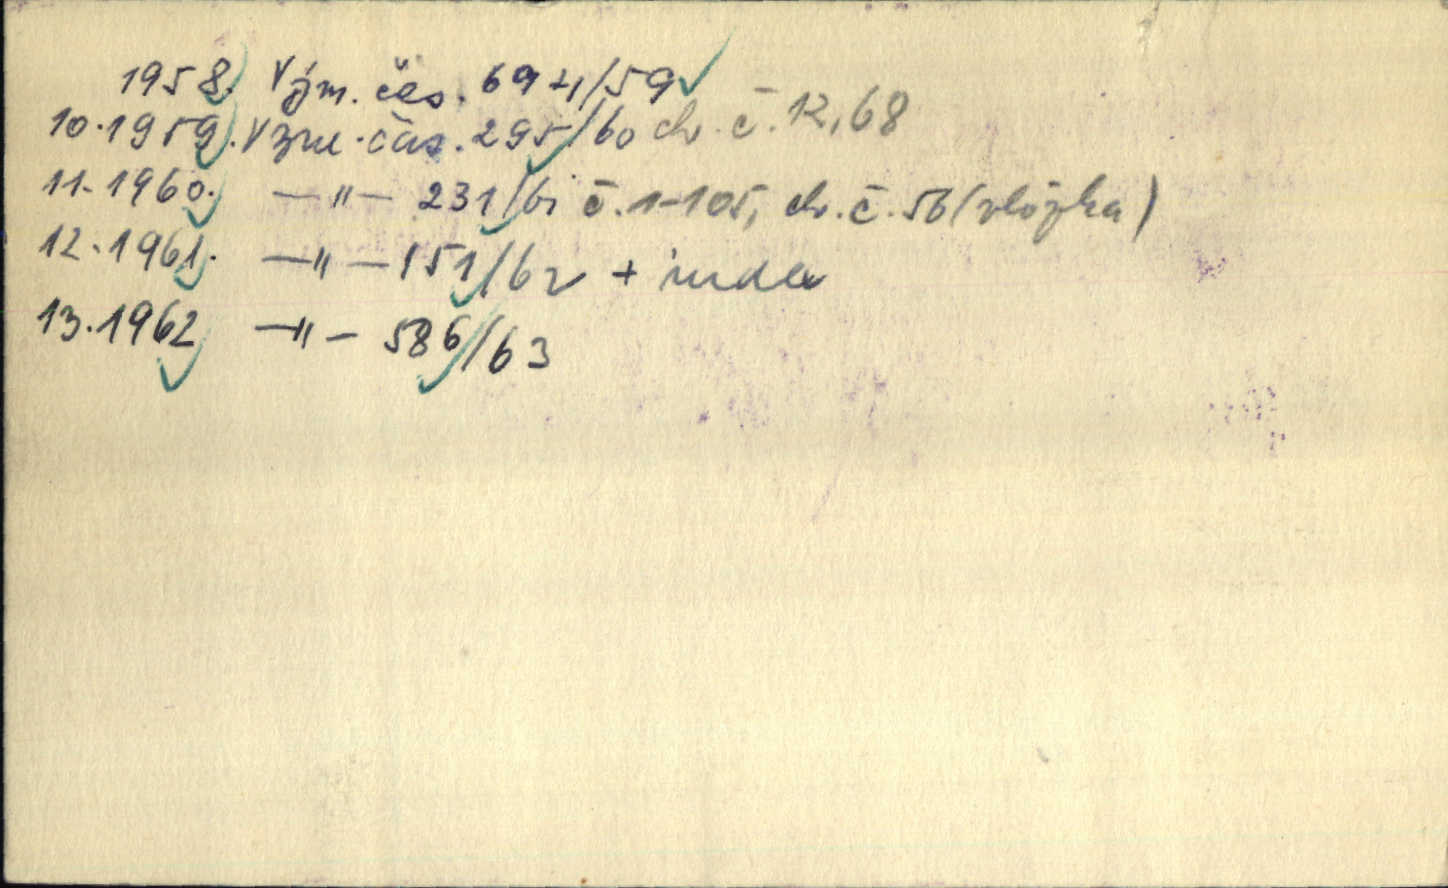 1958. Vým. čas. 694/59
10.1959. Vým. čas. 295/60 ch. č. 12,68
11.1960. —"— 231/61 č. 1-105, ch. č. 56 (vložka)
12.1961. —"— 151/62 + index
13.1962 —"— 586/63